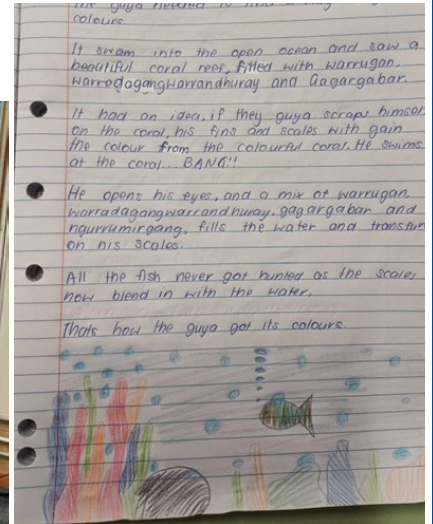 the guya needed to find a way
colours.
It swam into the open ocean and saw a
beautiful coral reef, filled with warrugan,
warradagangwarrandhuray and Gagargabar.
It had an idea, if they guya scraps himself
on the coral, his fins and scales with gain
the colour from the colourful coral. He swims
at the coral... BANG!!
He opens his eyes, and a mix of warrugan,
warradagangwarrandhuray, gagargabar and
ngurrumirgang, fills the water and transfur
on his scales.
All the fish never got hunted as the scales
now blend in with the water.
Thats how the guya got its colours.